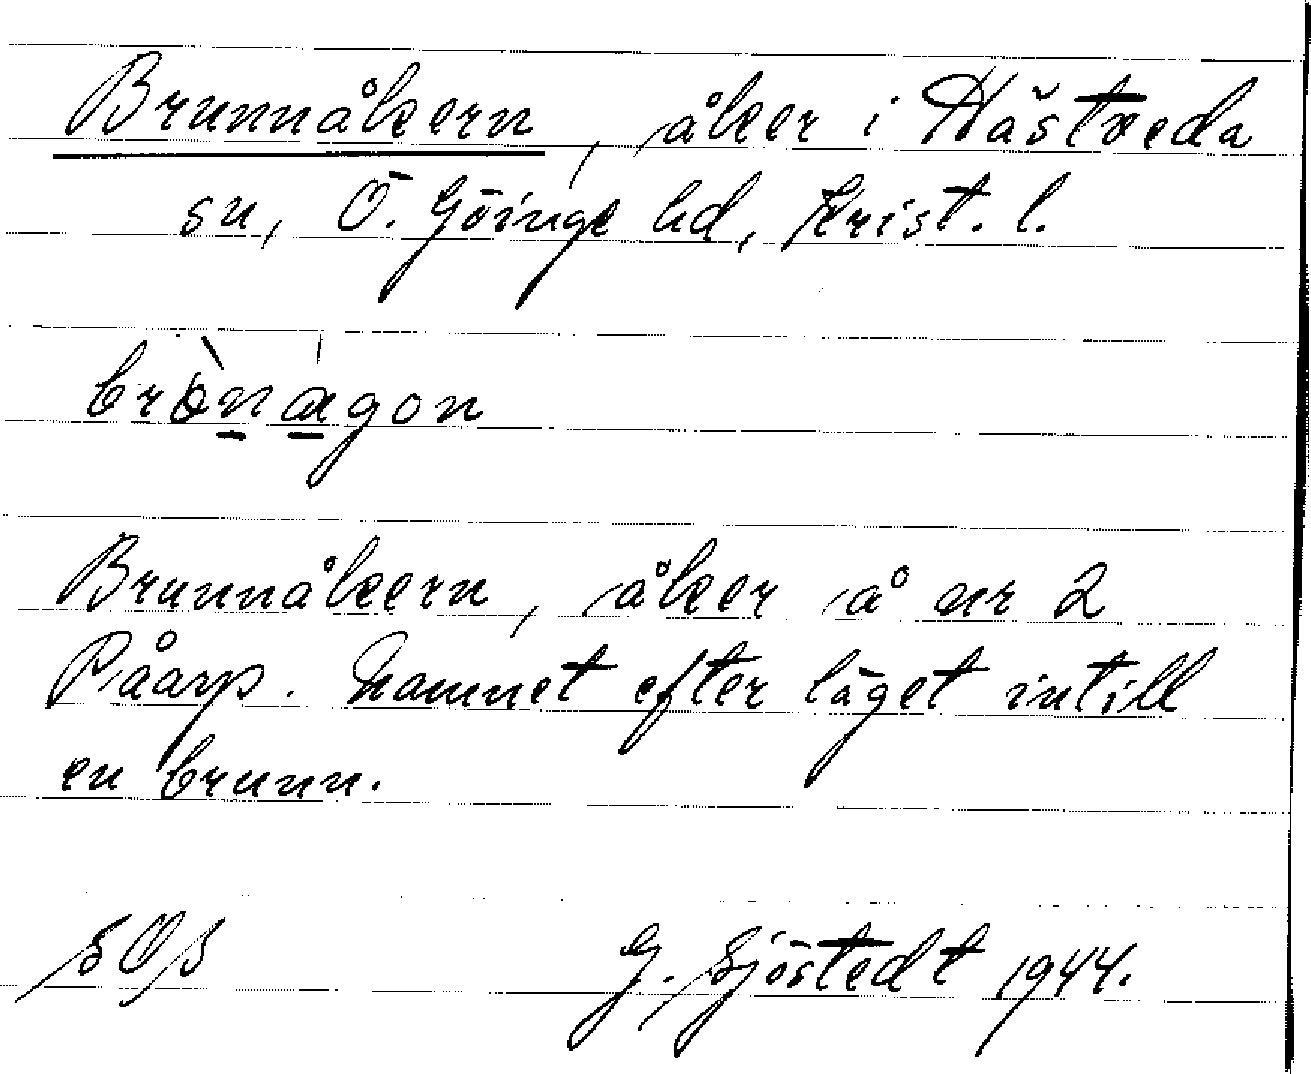 Brunnåkern, åker i Hästveda
sn, Ö. Göinge hd, Krist. l.
brònágon
Brunnåkern, åker å nr 2
Påarp. Namnet efter läget intill
en brunn.
SOS
G. Sjöstedt 1944.